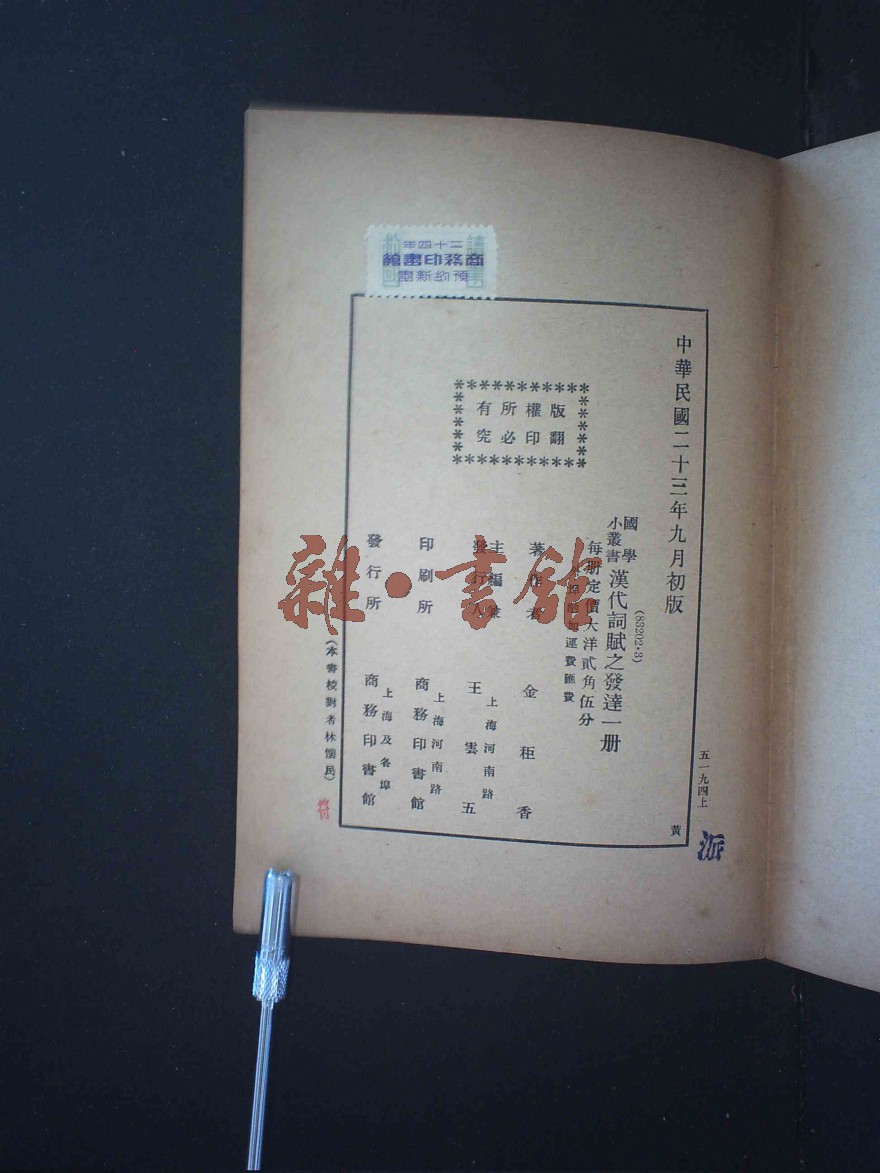 二十四年
商務印書館
預約新書
中華民國二十三年九月初版
(83202·3)
國學
小叢書
漢代詞賦之發達一册
每册定價大洋貳角伍分
外埠酌加運費匯費
版權所有
翻印必究
著作者 金秬香
主編兼
發行人 王雲五
上海河南路
印刷所 商務印書館
上海河南路
發行所 商務印書館
上海及各埠
(本書校對者林懷民)
五一九四上
黃
派
雜·書館